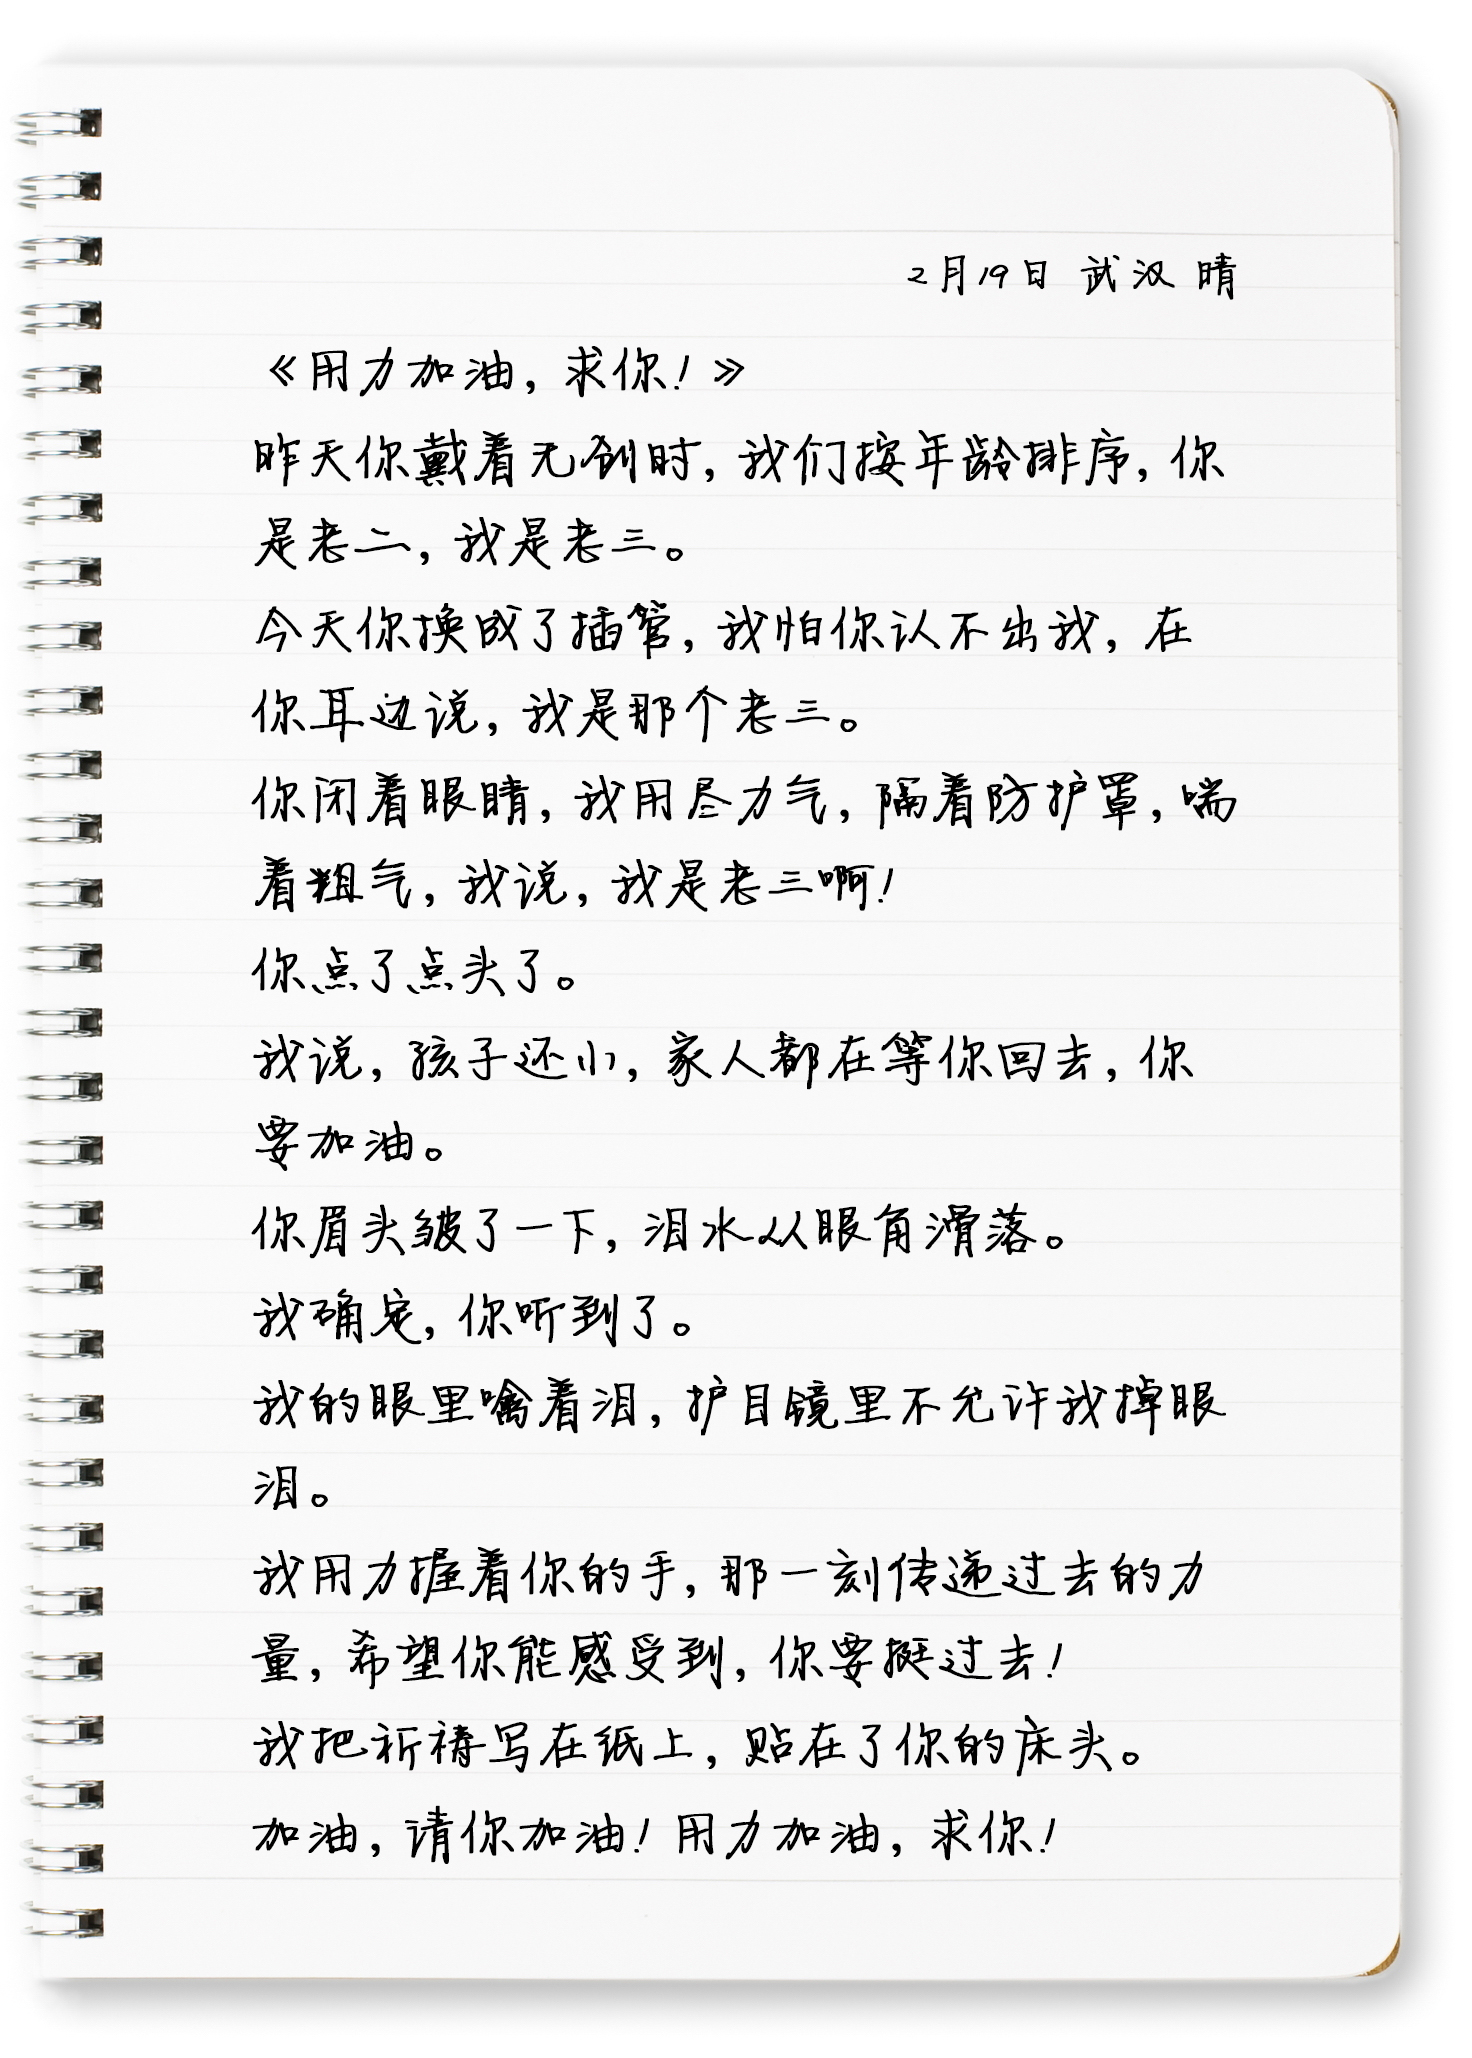 2月19日 武汉 晴
《用力加油，求你！》
昨天你戴着无创时，我们按年龄排序，你
是老二，我是老三。
今天你换成了插管，我怕你认不出我，在
你耳边说，我是那个老三。
你闭着眼睛，我用尽力气，隔着防护罩，喘
着粗气，我说，我是老三啊！
你点了点头了。
我说，孩子还小，家人都在等你回去，你
要加油。
你眉头皱了一下，泪水从眼角滑落。
我确定，你听到了。
我的眼里噙着泪，护目镜里不允许我掉眼
泪。
我用力握着你的手，那一刻传递过去的力
量，希望你能感受到，你要挺过去！
我把祈祷写在纸上，贴在了你的床头。
加油，请你加油！用力加油，求你！